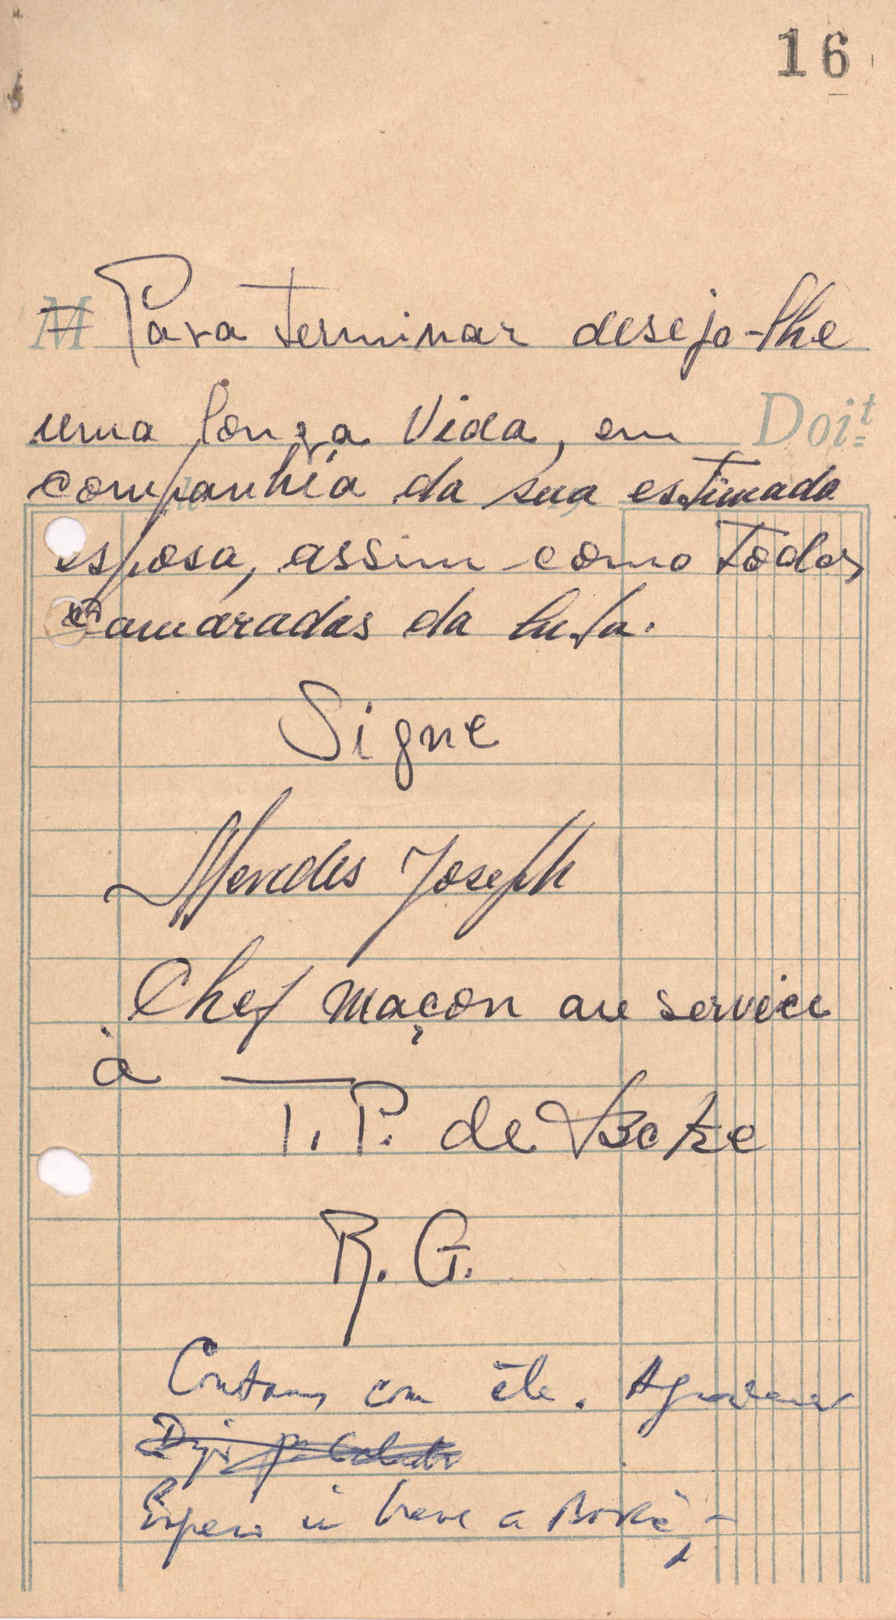 16
M Para terminar desejo-lhe
uma longa Vida, em Doit
companhia da sua estimada
esposa, assim como todos
camaradas da luta.
Signe
Mendes Joseph
Chef maçon au service
à
T. P. de Boke
R. G.
Contamos com êle. Agradecer
Espero ir breve a Boké -